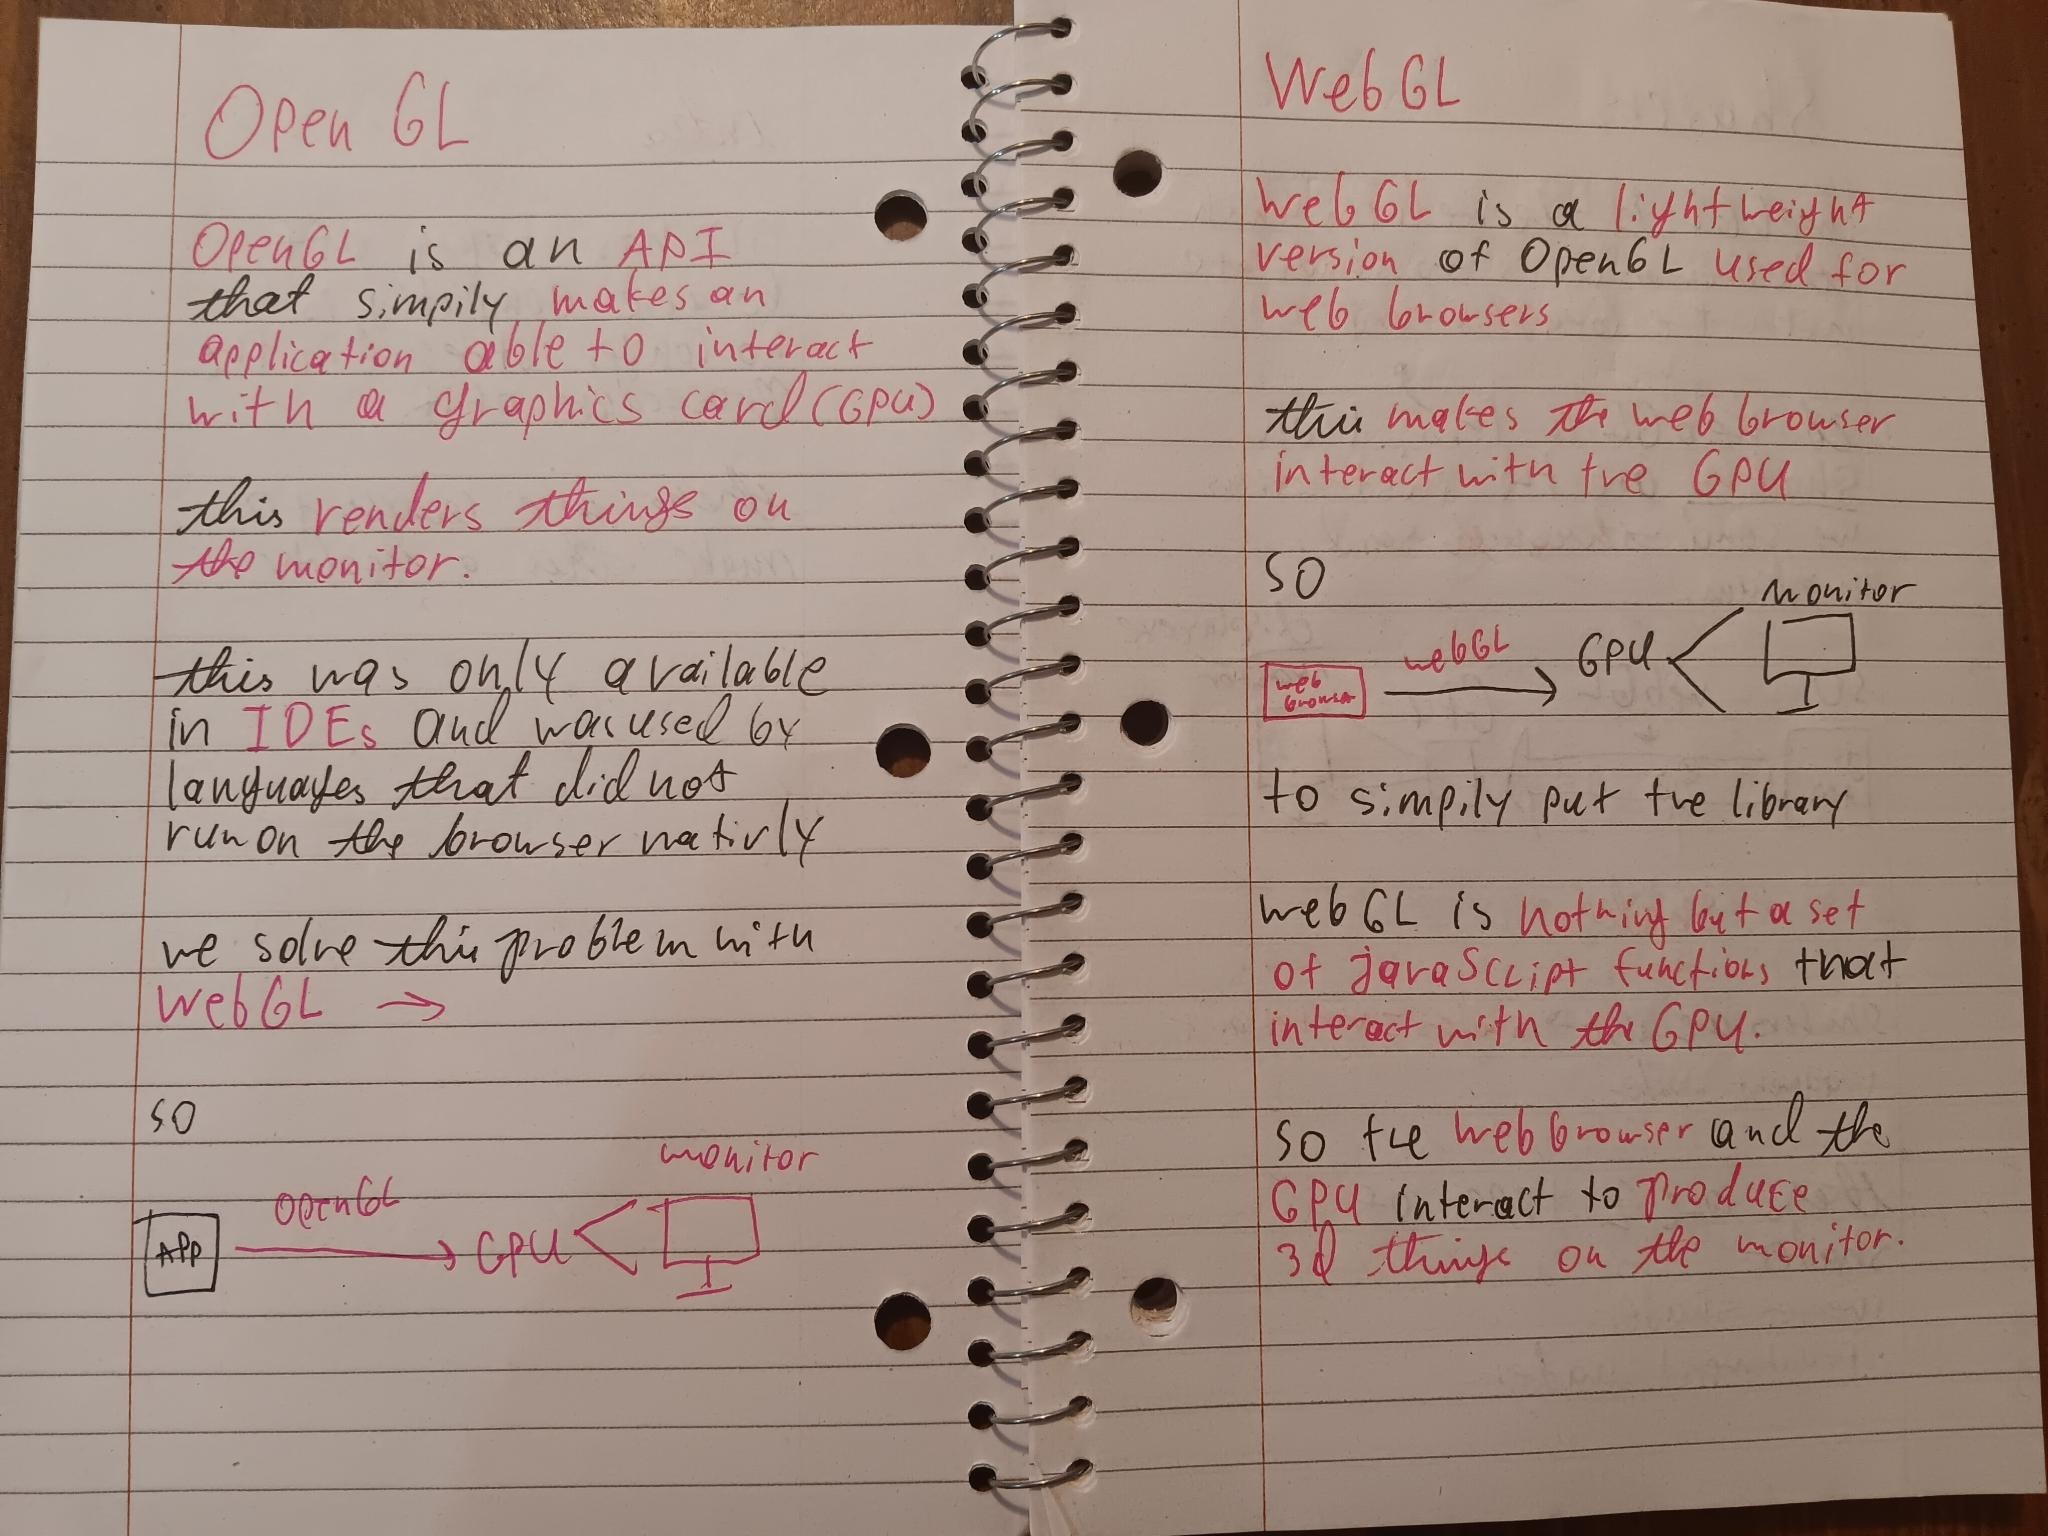 Open GL
OpenGL is an API
that simpily makes an
application able to interact
with a graphics card (GPU)
this renders things on
the monitor.
this was only available
in IDEs and was used by
languages that did not
run on the browser nativly
we solve this problem with
WebGL →
so
monitor
OpenGL
APP
GPU
WebGL
WebGL is a lightweight
version of OpenGL used for
web browsers
this makes the web browser
interact with the GPU
so
monitor
webGL
GPU
web
browser
to simpily put the library
webGL is nothing but a set
of javaScript functions that
interact with the GPU.
so the web browser and the
GPU interact to produce
3d things on the monitor.